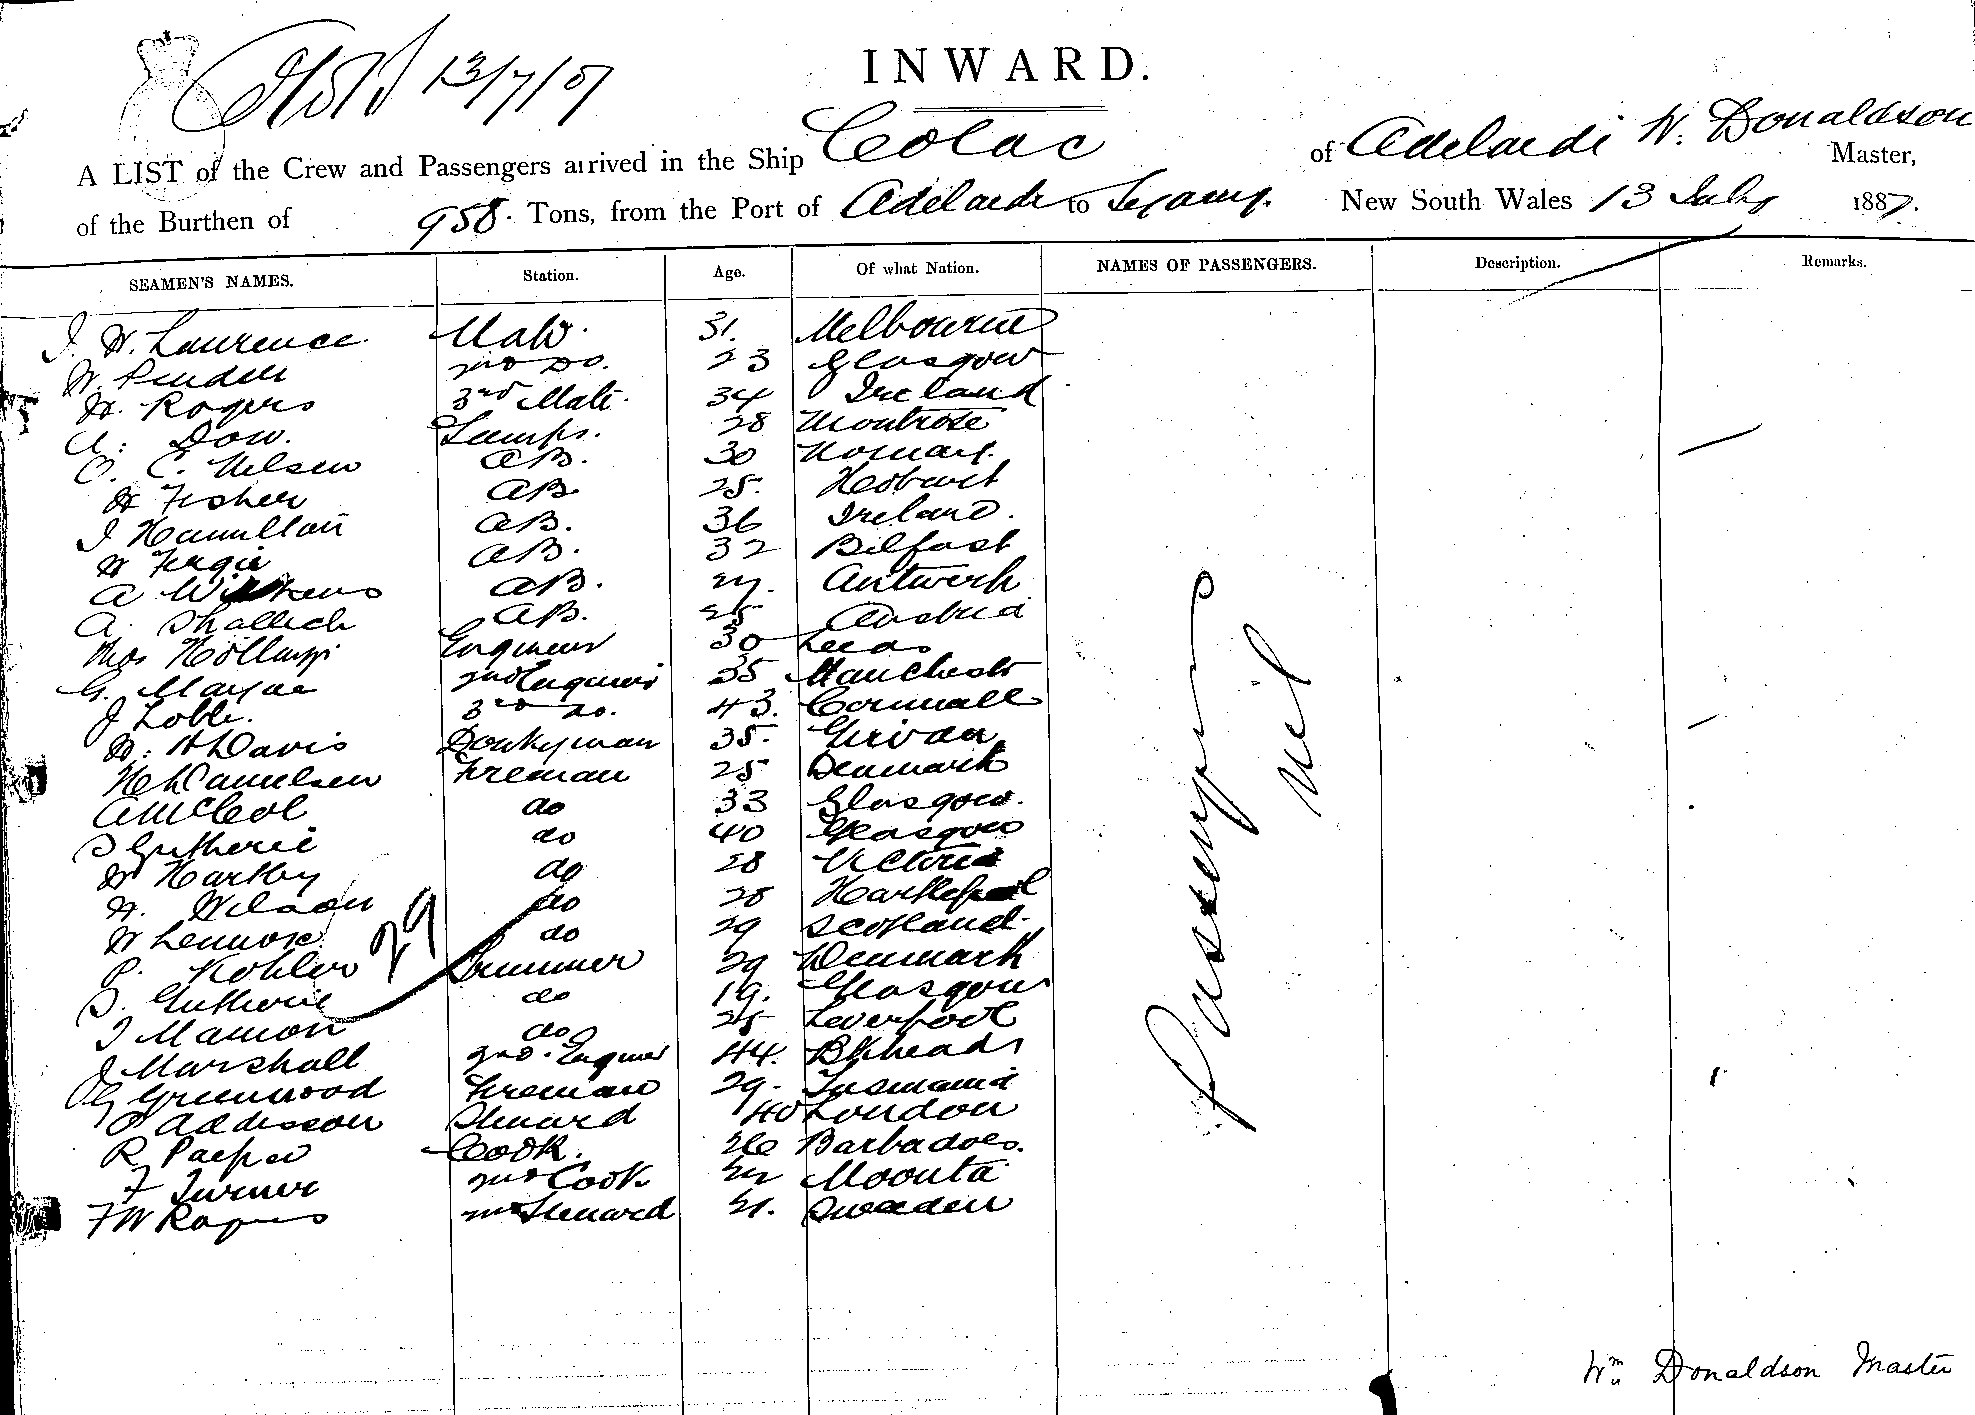 13/7/87
INWARD.
A LIST of the Crew and Passengers arrived in the Ship Colac of Adelaide W. Donaldson Master,
of the Burthen of 958. Tons, from the Port of Adelaide to New South Wales 13 July 1887.
SEAMEN'S NAMES. Station. Age. Of what Nation. NAMES OF PASSENGERS. Description. Remarks.
J. H. Laurence Mate. 31. Melbourne
W. 2nd Do. 23 Glasgow
H. Rogers 3rd Mate. 34 Ireland
A. Dow. Lamps. 28 Montrose
O. C. Nilsen AB. 30 Norway.
H Fisher AB 25. Hobart
J Hamilton AB. 36 Ireland.
W AB. 32 Belfast
A AB. 27. Antwerp
A. AB. 25 Austria
Thos Engineer 30 Leeds
G. Mayne 2nd Engineer 35 Manchestr
J 3rd Do. 43. Cornwall
W. H Davis Donkeyman 35. Girvan
H Danielsen Fireman 25 Denmark
A McLeod do 33 Glasgow.
D Gutherie do 40 Glasgow
W Hartley do 28 Victoria
H. Wilson do 28 Hartlepool
W Lennox do 29 Scotland.
P. Kohler Trimmer 29 Denmark
D. Gutherie do 19. Glasgow
J Mamon do 25 Leverpool
J Marshall 2nd. Engineer 44. B'Kheads
G Greenwood Fireman 29. Tasmania
P Addisson Steward 40 London
R Cook. 26 Barbadoes.
F Turner 2nd Cook 22 Moonta
F W Rogers 2nd Steward 21. Sweaden
29
Passengers
Nil
Wm Donaldson Master